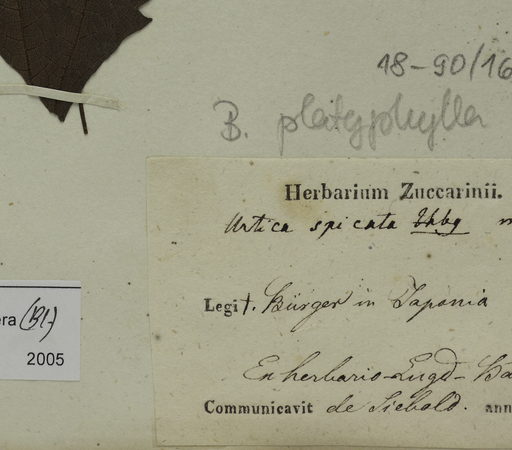 18-90/16
B. platyphylla
Herbarium Zuccarinii.
Urtica spicata Thbg
Legit. Bürger in Japonia
En herbario Lugd-Ba
Communicavit de Siebold. ann
era (Bl.)
2005